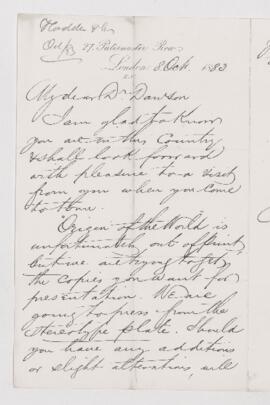 Hodder & Co
Oct/83 27, Paternoster Row,
London 8 Oct. 1883
E.C.
My dear Dr Dawson
I am glad to know
you are in this Country
& shall look forward
with pleasure to a visit
from you when you come
to town.
"Origin of the World is
unfortunately out of print
but we are trying to get
the copies you want for
presentation. We are
going to press from the
stereotype plate. Should
you have any additions
or slight alterations, will